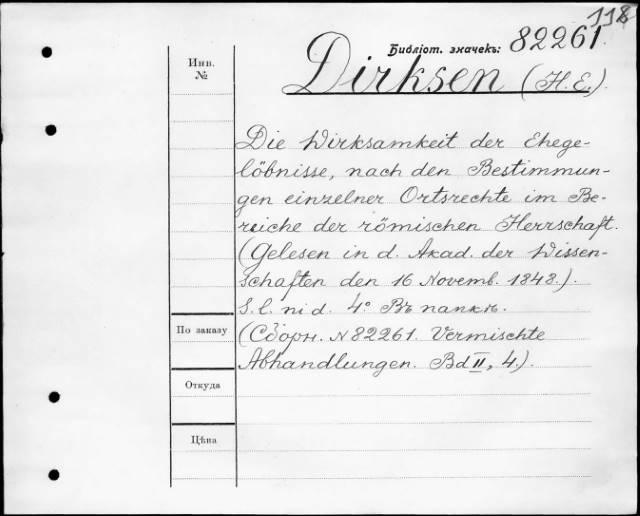 118
Библіот. значекъ: 82261.
Инв.
№
Dirksen (H. E.).
Die Wirksamkeit der Ehege-
löbnisse, nach den Bestimmun-
gen einzelner Ortsrechte im Be-
reiche der römischen Herrschaft.
(Gelesen in d. Akad. der Wissen-
schaften den 16 Novemb. 1848.).
S. l. ni d. 4° Въ папкѣ.
По заказу
(Сборн. N 82261. Vermischte
Abhandlungen. Bd II, 4.).
Откуда
Цѣна